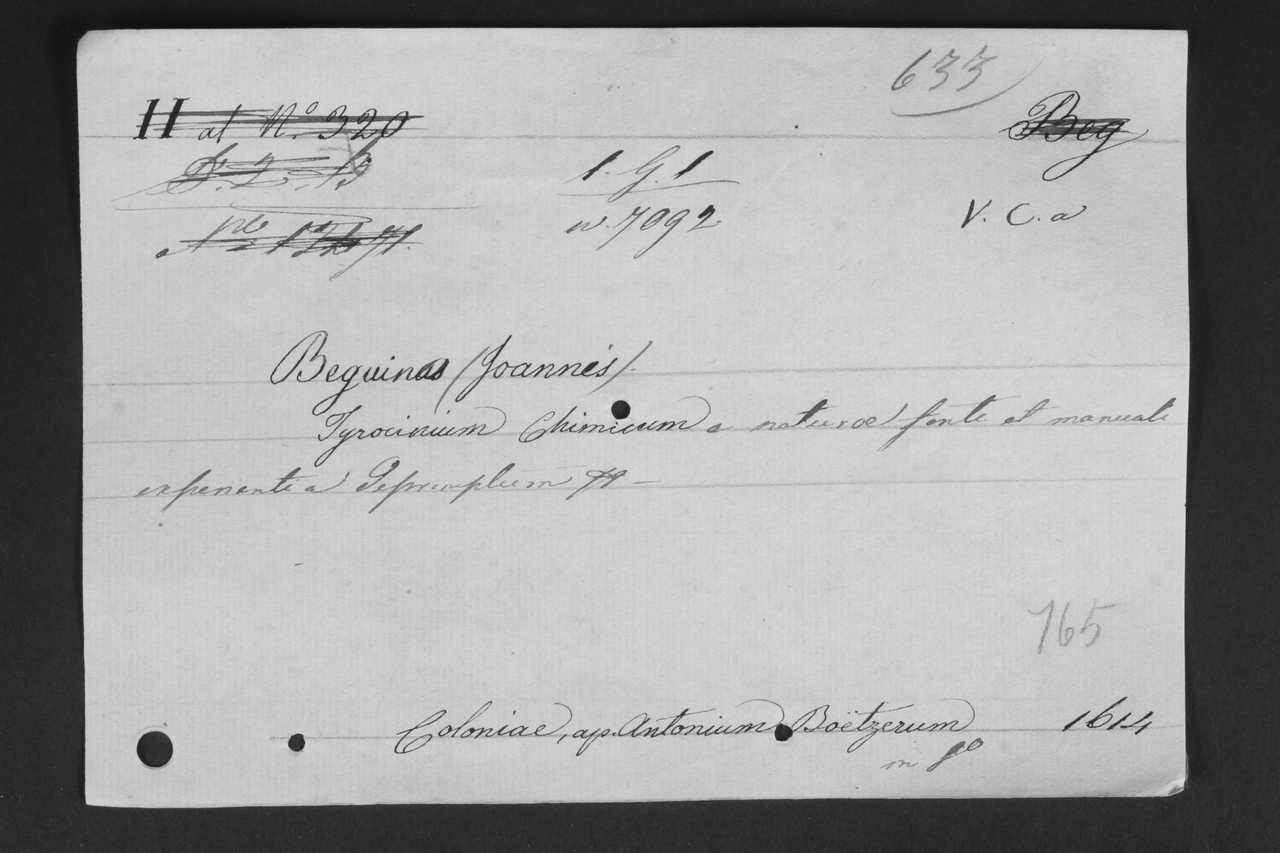 633
H at N.º 320
Beg
1. G. 1
V. C. a
n. 7092
Beguinus (Joannes).
Tyrocinium Chimicum a naturæ fonte et manuali
experientia Depromptum
765
Coloniae, ap. Antonium Boëtzerum 1614
in 8º